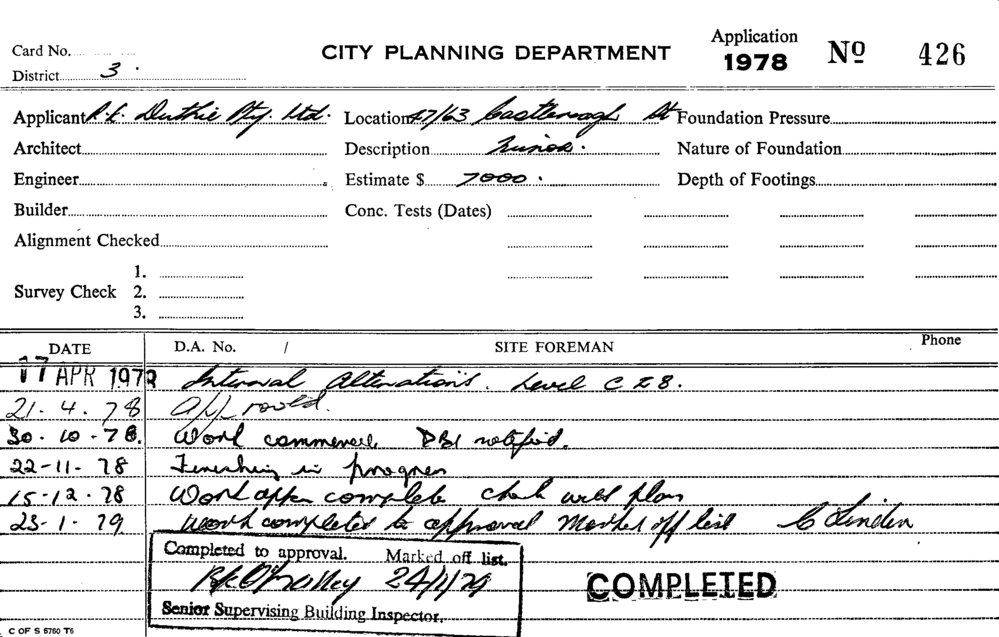 Application
Card No.
CITY PLANNING DEPARTMENT
1978 No 426
District 3.
Applicant R.E. Duthie Pty. Ltd. Location 47/63 Castlereagh St Foundation Pressure
Architect Description Minor. Nature of Foundation
Engineer Estimate $ 7000. Depth of Footings
Builder Conc. Tests (Dates)
Alignment Checked
1.
Survey Check 2.
3.
DATE D.A. No. / SITE FOREMAN Phone
17 APR 1978 Internal Alterations. Level C & B.
21. 4. 78 approved.
30. 10. 78. Work commenced, notified.
22-11-78 Finishing in progress
15-12-78 Work appears complete check with plan
23-1-79 Work completed to approval Marked off list
Completed to approval. Marked off list.
24/1/79
COMPLETED
Senior Supervising Building Inspector.
C OF S 5760 T6